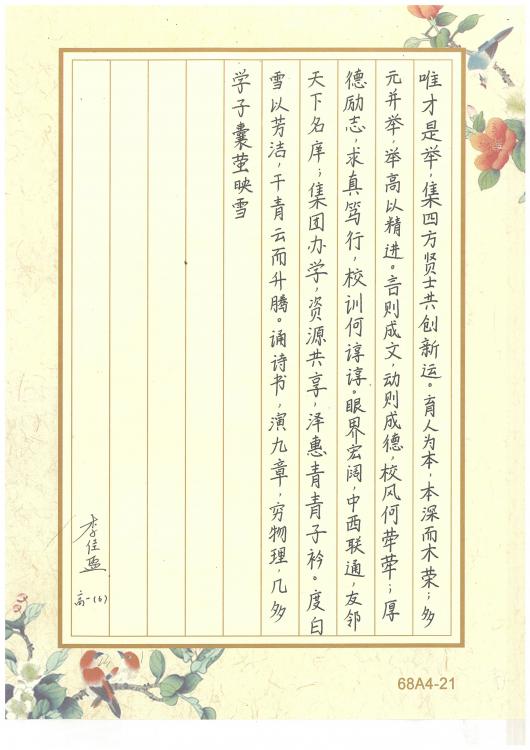 唯才是举，集四方贤士共创新运。育人为本，本深而木荣；多
元并举，举高以精进。言则成文，动则成德，校风何荦荦；厚
德励志，求真笃行，校训何谆谆。眼界宏阔，中西联通，友邻
天下名庠；集团办学，资源共享，泽惠青青子衿。度白
雪以芳洁，干青云而升腾。诵诗书，演九章，穷物理，几多
学子囊萤映雪
李佳盈
高一(6)
68A4-21